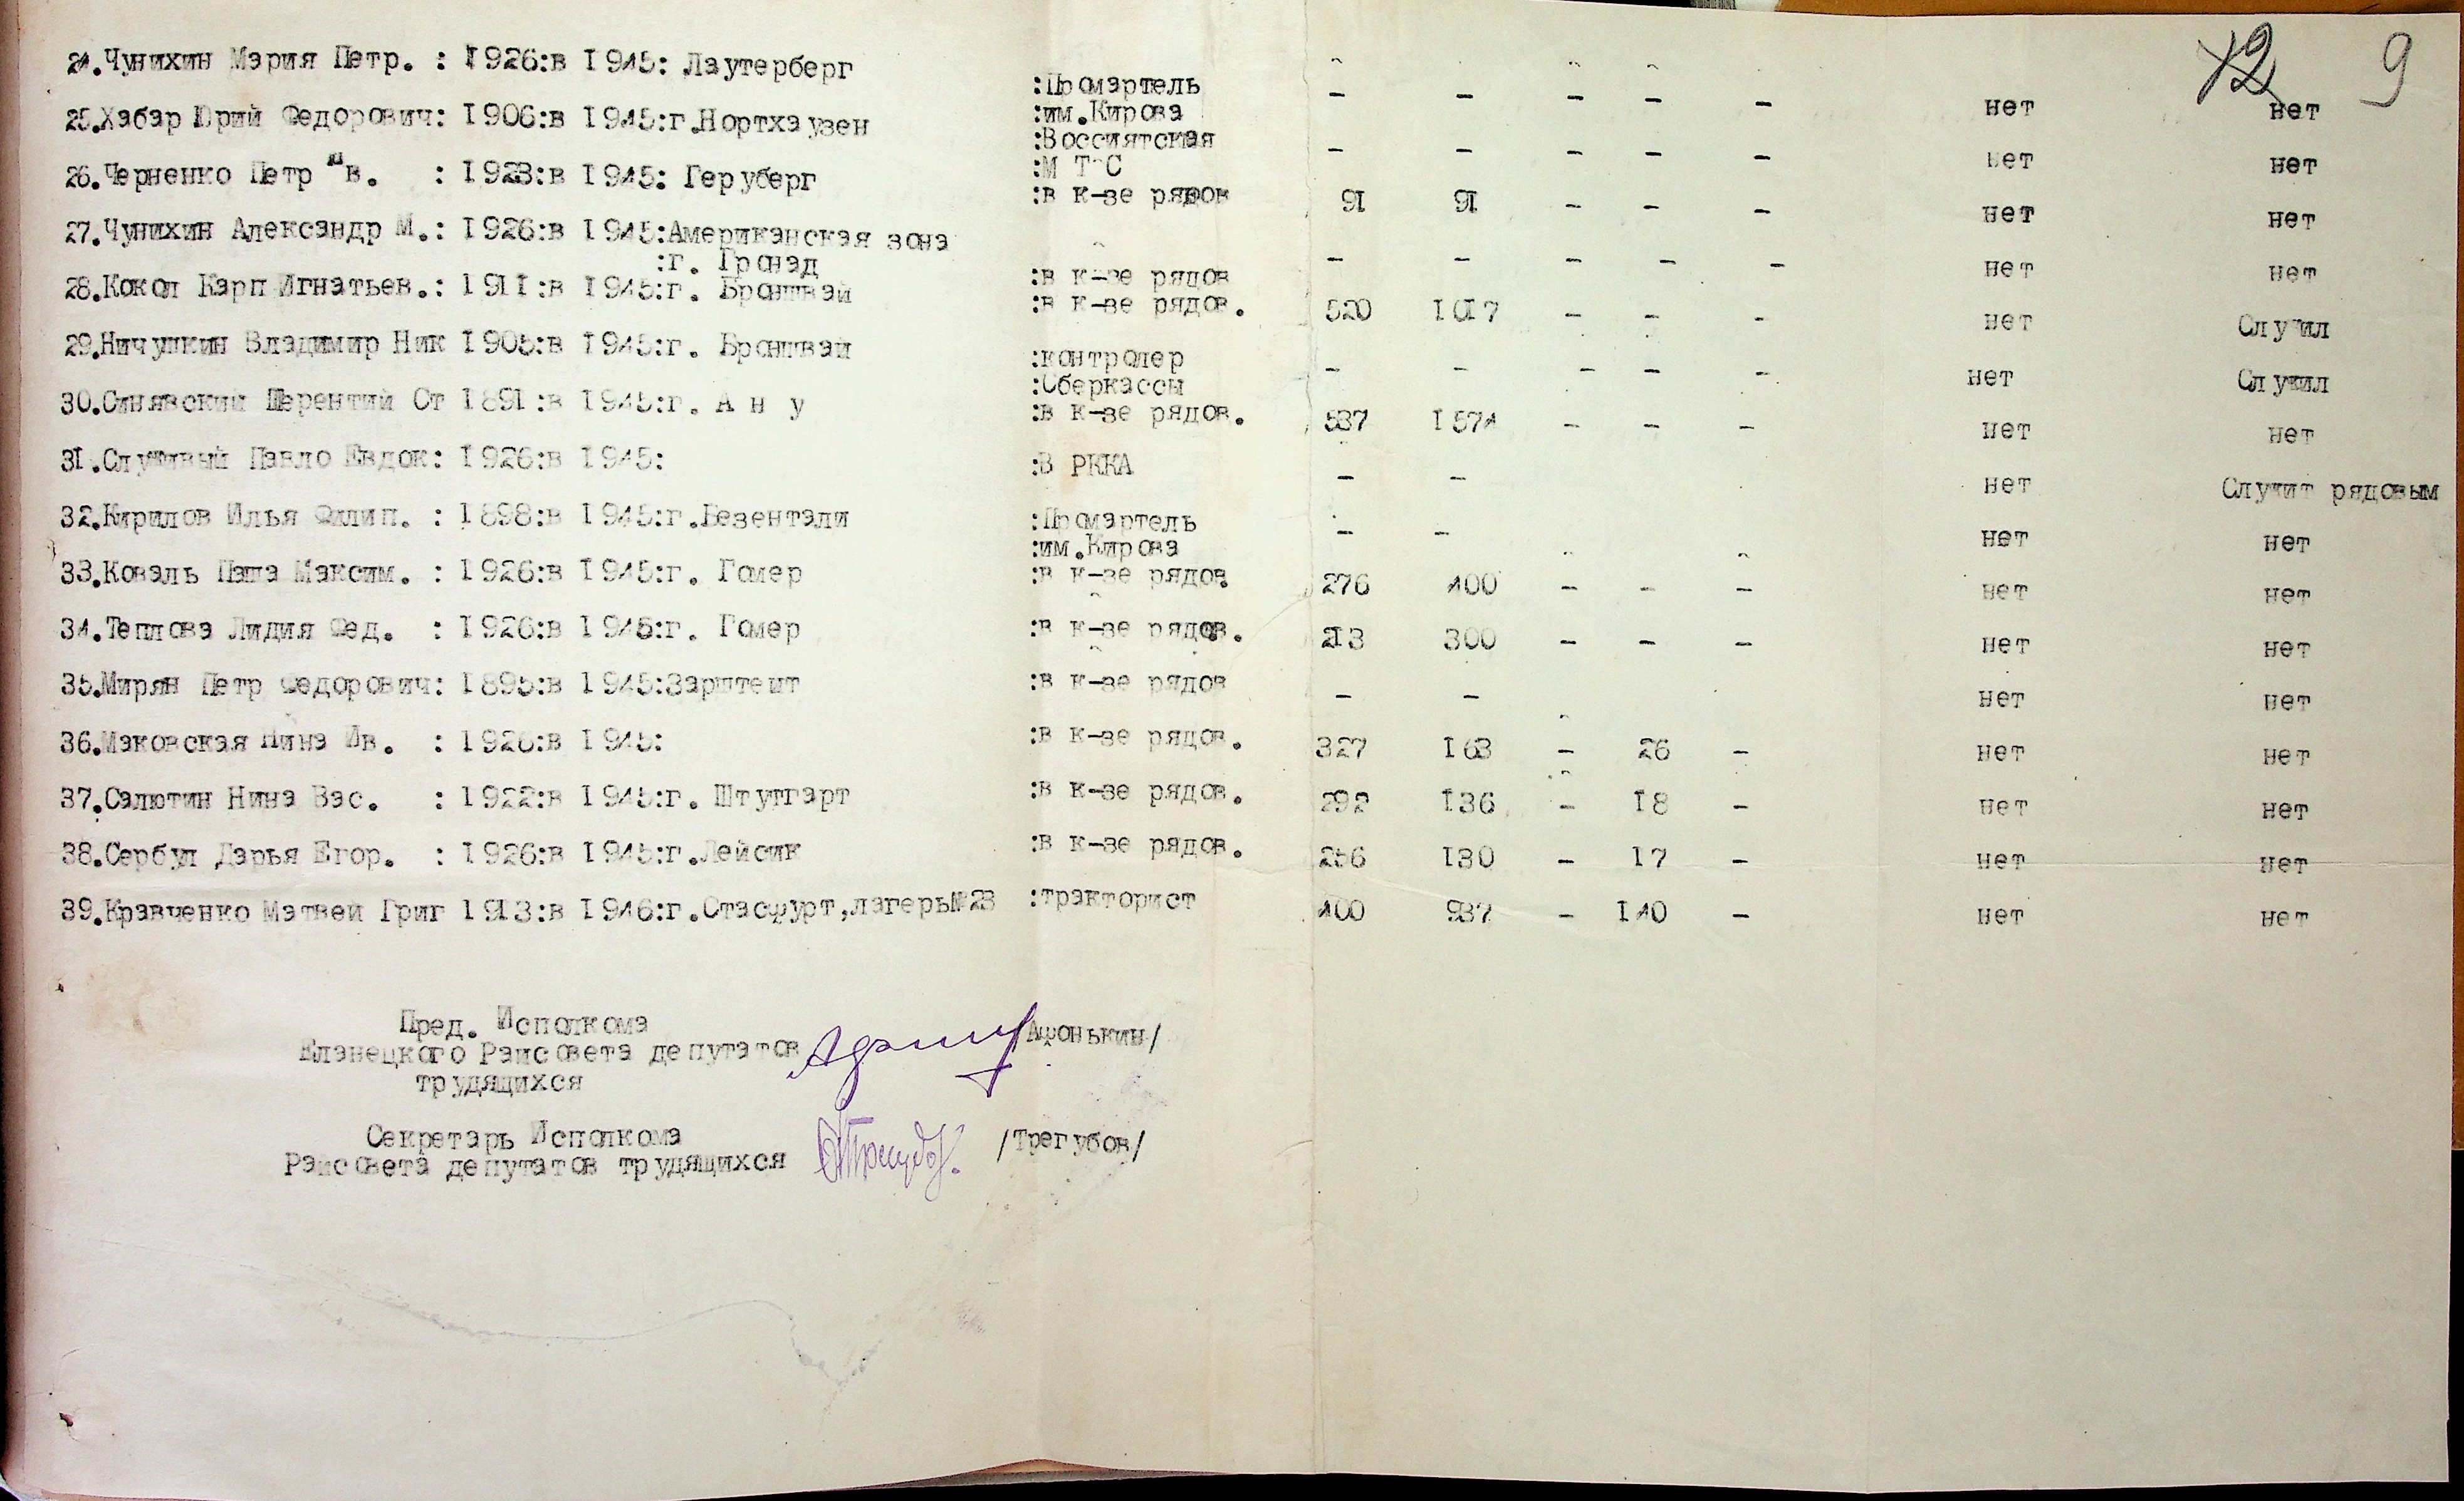 12 9
24.Чунихин Мария Петр. : 1926:в 1945: Лаутерберг :Промартель - - - - - нет нет
:им.Кирова
25.Хабар Юрий Федорович: 1906:в 1945:г.Нортхаузен :Воссиятская - - - - - нет нет
:М Т С
26.Черненко Петр Ив. : 1923:в 1945: Геруберг :в к-зе рядов 91 91 - - - нет нет
27.Чунихин Александр М.: 1926:в 1945:Американская зона
:г. Гронад :в к-зе рядов - - - - - нет нет
28.Кокол Карп Игнатьев.: 1911:в 1945:г. Броншвай :в к-зе рядов. 520 1017 - - - нет Служил
29.Ничушкин Владимир Ник 1905:в 1945:г. Броншвай :контролер - - - - - нет Служил
:Сберкассы
30.Синявский Терентий Ст 1891:в 1945:г. А н у :в к-зе рядов. 537 1574 - - - нет нет
31.Служивый Павло Евдок: 1926:в 1945: :В РККА - - нет Служит рядовым
32.Кирилов Илья Филип. : 1898:в 1945:г.Безентали :Промартель - - нет нет
:им.Кирова
33.Коваль Паша Максим. : 1926:в 1945:г. Гомер :в к-зе рядов. 276 400 - - - нет нет
34.Теплова Лидия Фед. : 1926:в 1945:г. Гомер :в к-зе рядов. 213 300 - - - нет нет
35.Мирян Петр Федорович: 1895:в 1945:Зарштешт :в к-зе рядов - - нет нет
36.Маковская Нина Ив. : 1926:в 1945: :в к-зе рядов. 327 163 - 26 - нет нет
37.Салютин Нина Вас. : 1922:в 1945:г. Штутгарт :в к-зе рядов. 292 136 - 18 - нет нет
38.Сербул Дарья Егор. : 1926:в 1945:г.Лейсик :в к-зе рядов. 256 130 - 17 - нет нет
39.Кравченко Матвей Григ 1913:в 1946:г.Стасфурт,лагерь№23 :тракторист 400 937 - 140 - нет нет
Пред. Исполкома
Еланецкого Райсовета депутатов /Афонькин/
трудящихся
Секретарь Исполкома
Райсовета депутатов трудящихся /Трегубов/